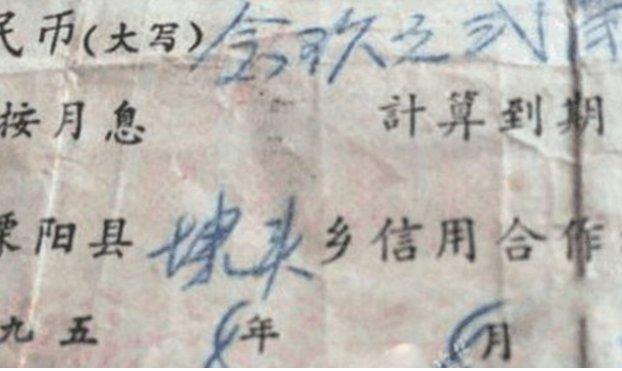 民币(大写)玖元弍
按月息 計算到期
溧阳县埭头乡信用合作
九五8年 8月